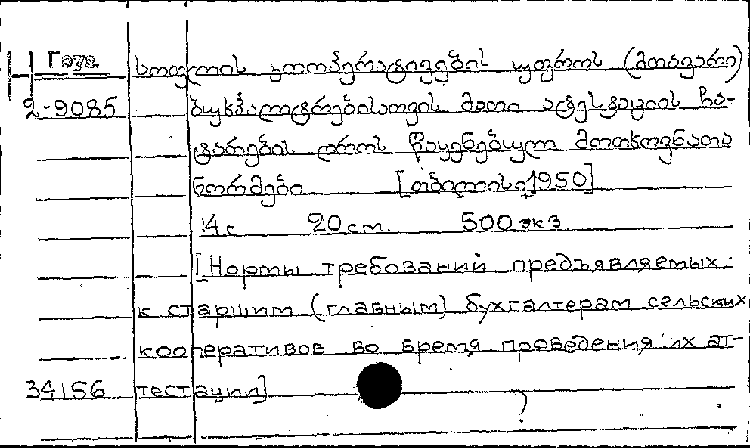 სოფლის კოოპერატივების უფროს (მთავარი)
2-9085 ბუხჰალტრებისათვის მათი ატესტაციის ჩა-
ტარების დროს წაყენებულ მოთხოვნათა
ნორმები [თბილისი, 1950]
4 с 20 см. 500 экз
[Нормы требований предъявляемых
к старшим (главным) бухгалтерам сельских
кооперативов во время проведения их ат-
34156 тестации]